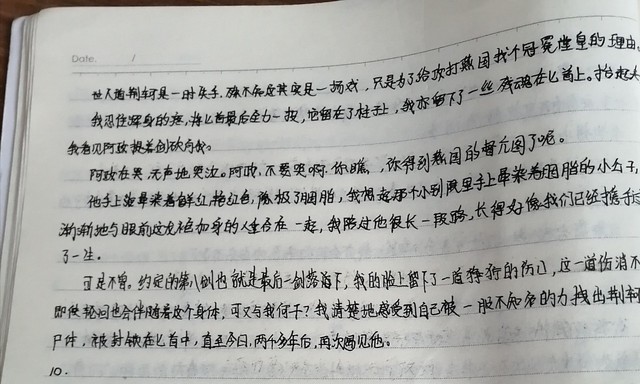 Date. /
世人道荆轲是一时失手,殊不知这其实是一场戏,只是为了给攻打燕国找个冠冕堂皇的理由。
我忍住浑身的疼,将匕首最后全力一投,它留在了柱子上,我亦留下了一丝残魂在匕首上。抬起头
我看见阿政提着剑砍向我。
阿政在哭,无声地哭泣。阿政,不要哭啊,你瞧,你得到燕国的督亢图了呢。
他手上沾晕染着鲜红,艳红色,像极了胭脂,我想起那个小别院里手上晕染着胭脂的小公子,
渐渐地与眼前这龙袍加身的人重合在一起,我陪过他很长一段路,长得好像我们已经携手过
了一生。
可是不曾。约定的第八剑也就是最后一剑落落下,我的脸上留下了一道狰狞的伤口,这一道伤消不
即使轮回也会伴随着这个身体,可又与我何干?我清楚地感受到自己被一股不知名的力拽出荆轲
尸体,被封锁在匕首中,直至今日,两千多年后,再次遇见他。
10.